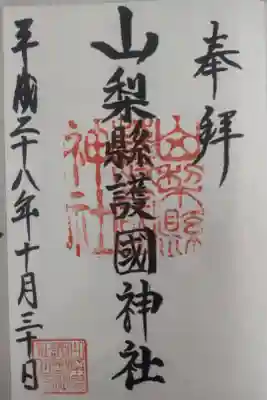 奉拜
山梨縣護國神社
平成二十八年十月三十日
山梨縣
護國
神社